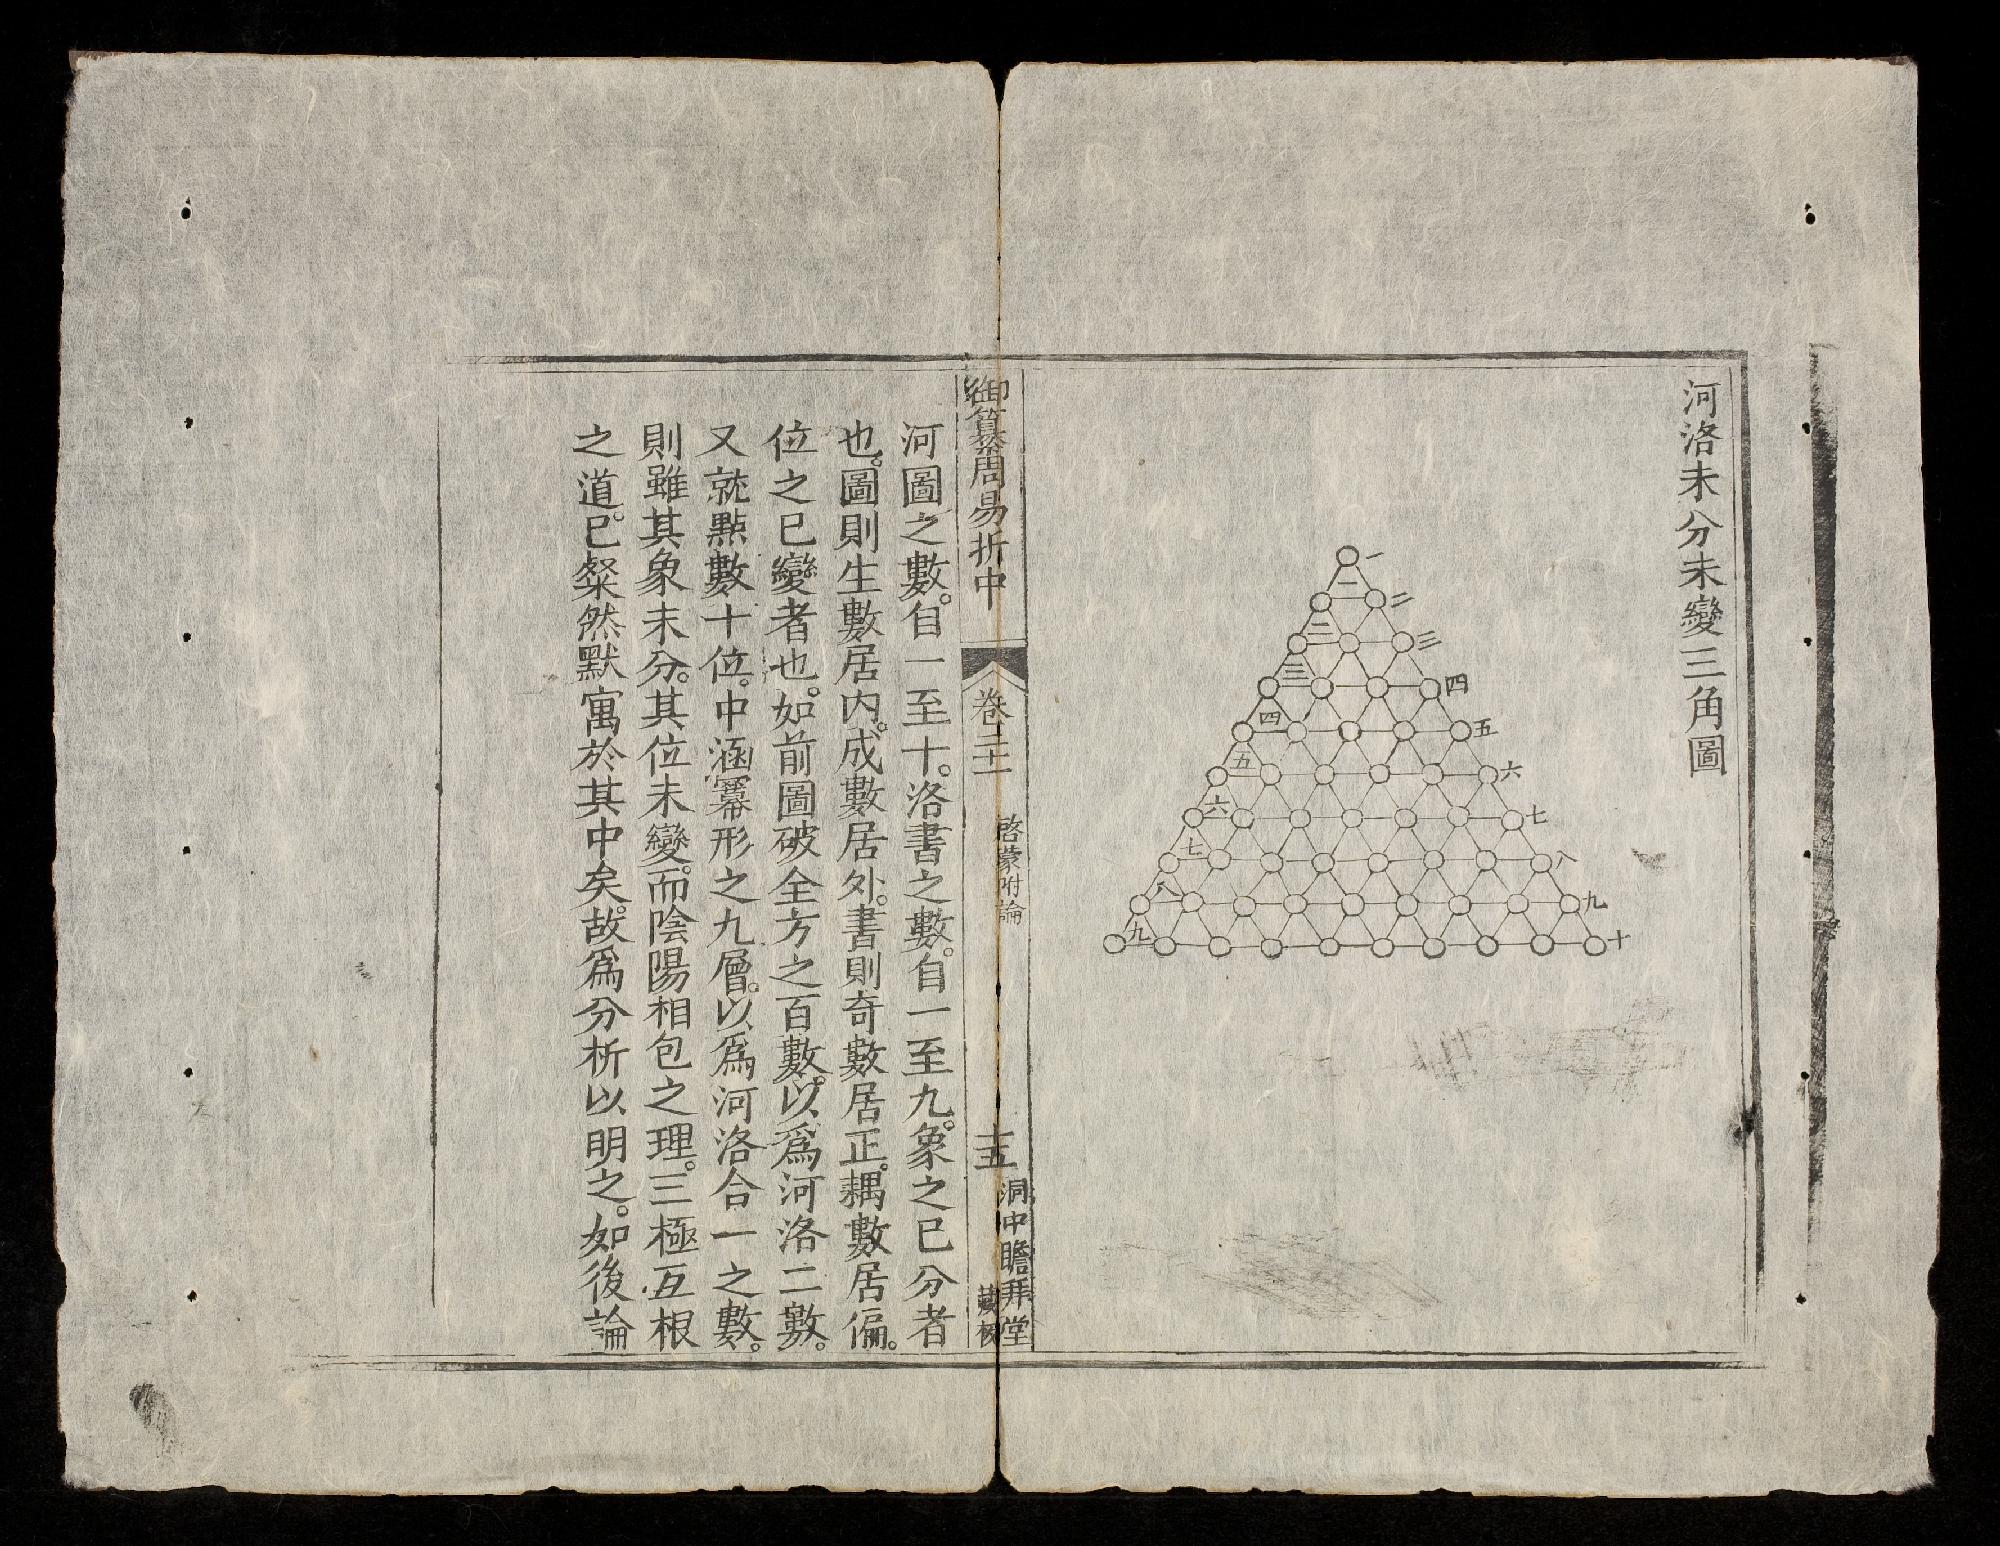 河洛未分未變三角圖
一
二
三
四
五
六
七
八
九
十
一
二
三
四
五
六
七
八
九
御纂周易折中
卷二十一
啓蒙附論
十五
洞中瞻拜堂
藏板
河圖之數。自一至十。洛書之數。自一至九。象之已分者
也。圖則生數居內。成數居外。書則奇數居正。耦數居偏。
位之已變者也。如前圖破全方之百數。以爲河洛二數。
又就點數十位。中涵冪形之九層。以爲河洛合一之數。
則雖其象未分。其位未變。而陰陽相包之理。三極互根
之道。已粲然默寓於其中矣。故爲分析以明之。如後論